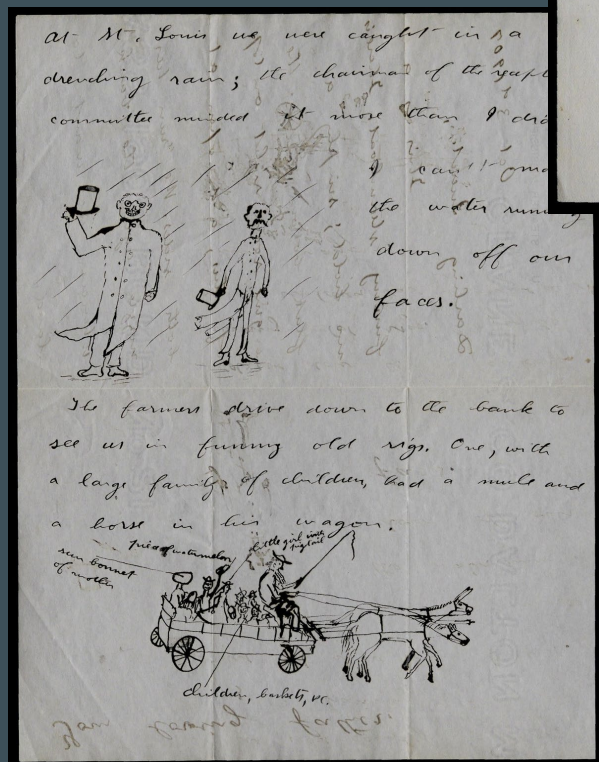 At St. Louis we were caught in a
drenching rain; the chairman of the
committee minded it more than I did
I can't
the water running
down off our
faces.
The farmers drive down to the bank to
see us in funny old rigs. One, with
a large family of children, had a mule and
a horse in his wagon.
sun bonnet
of mother
piece of watermelon
little girl with
pigtail
children, baskets, etc.
Your loving father.